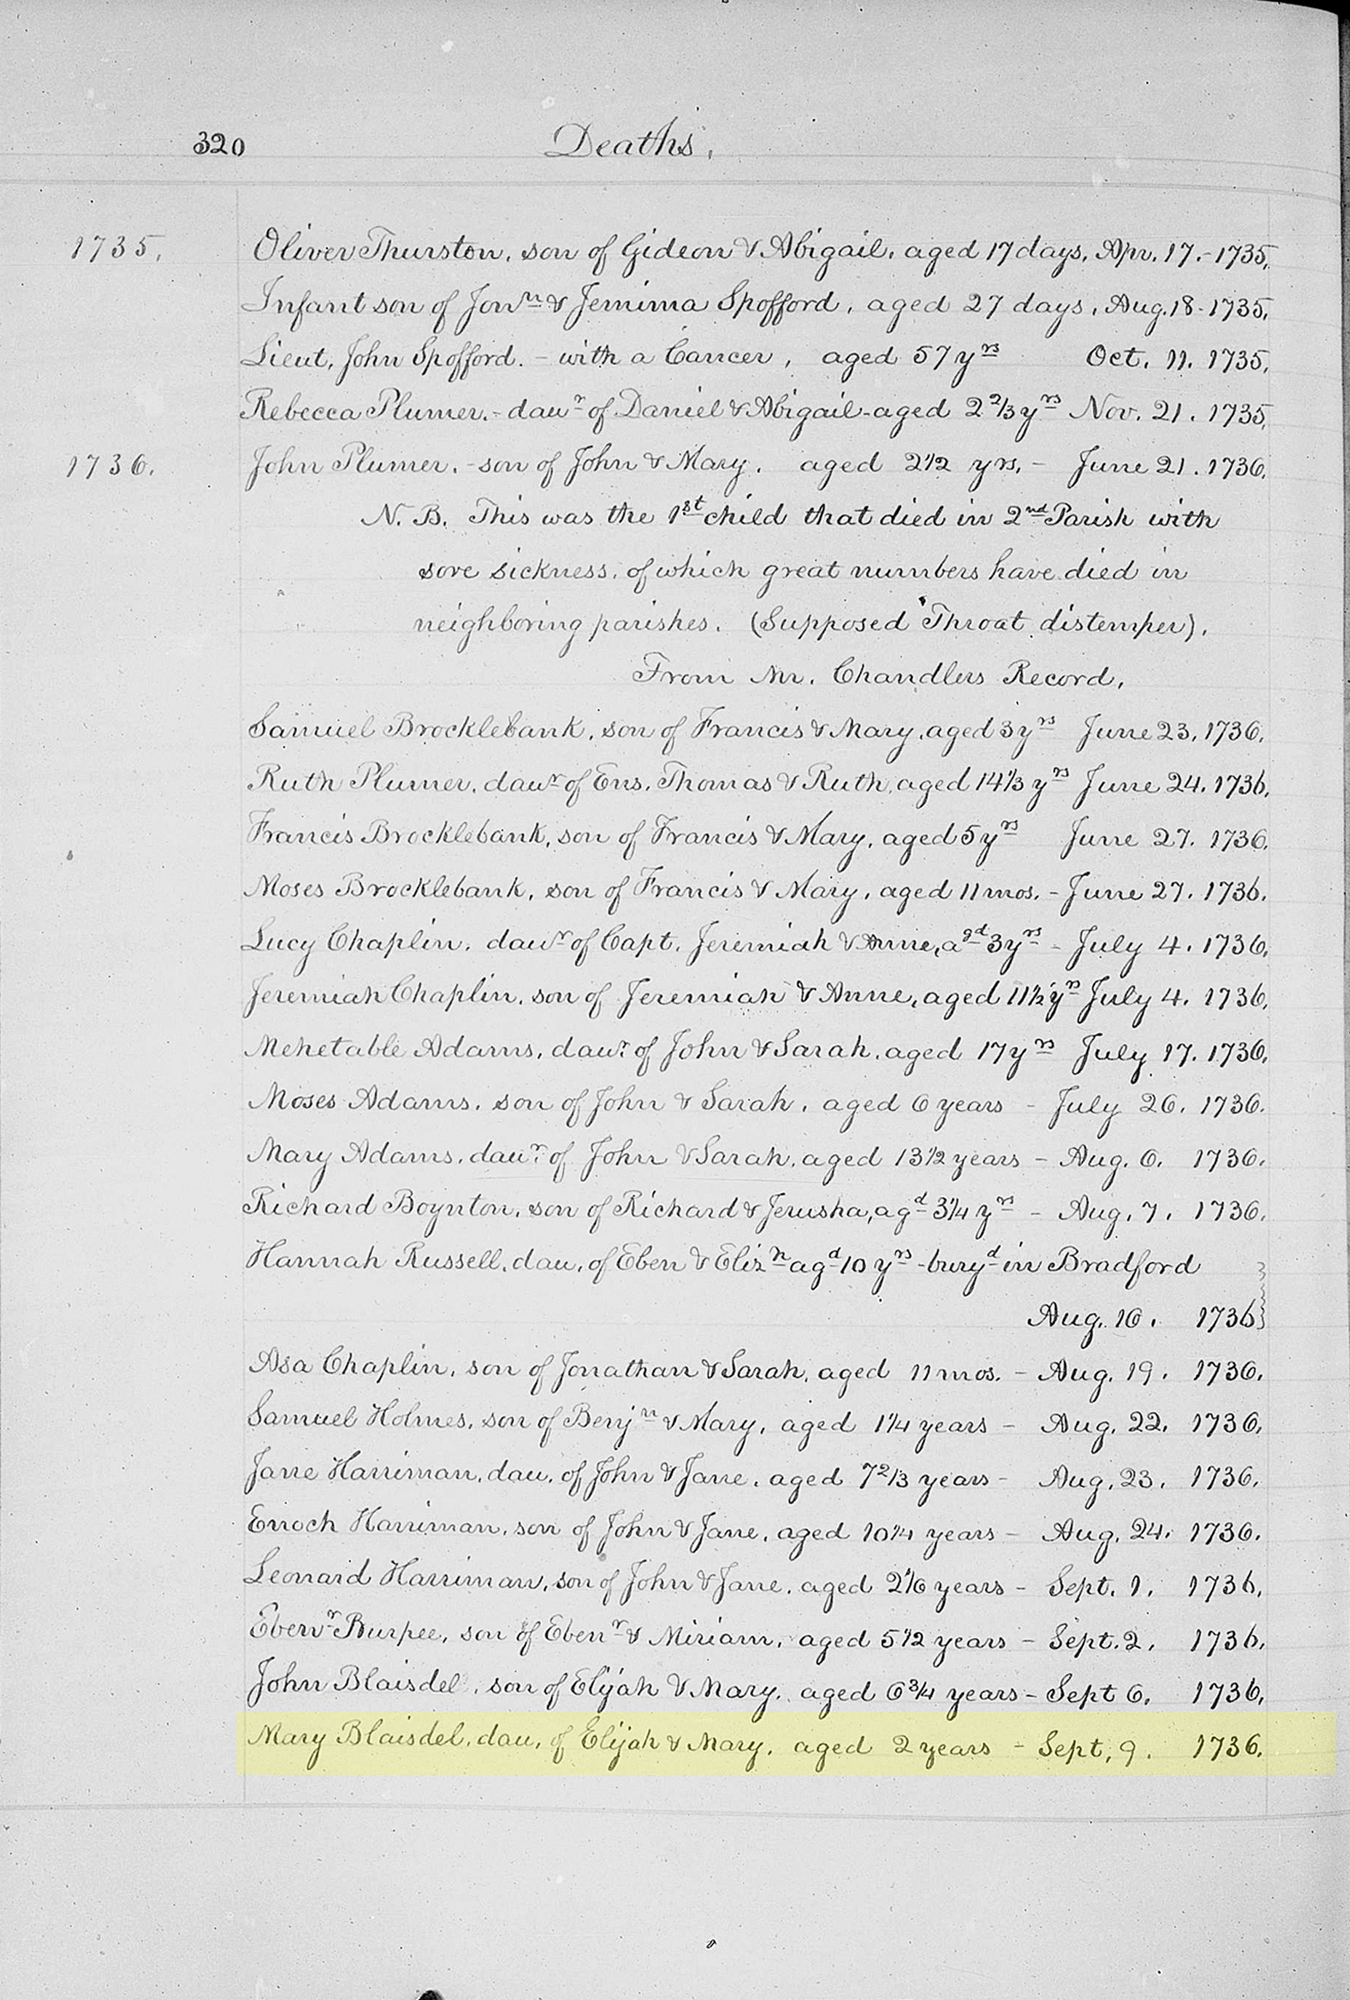 320 Deaths.
1735. Oliver Thurston, son of Gideon & Abigail, aged 17 days, Apr. 17.-1735.
Infant son of Jonn & Jemima Spofford, aged 27 days, Aug. 18-1735.
Lieut. John Spofford. - with a Cancer, aged 57 yrs Oct. 11. 1735.
Rebecca Plumer. - daur of Daniel & Abigail - aged 2 2/3 yrs Nov. 21. 1735.
1736. John Plumer. - son of John & Mary. aged 2 1/2 yrs. - June 21. 1736.
N. B. This was the 1st child that died in 2nd Parish with
sore sickness, of which great numbers have died in
neighboring parishes. (Supposed Throat distemper).
From Mr. Chandlers Record.
Samuel Brocklebank, son of Francis & Mary, aged 3 yrs June 23, 1736.
Ruth Plumer, daur of Ens. Thomas & Ruth, aged 14 1/3 yrs June 24. 1736.
Francis Brocklebank, son of Francis & Mary, aged 5 yrs June 27. 1736.
Moses Brocklebank, son of Francis & Mary, aged 11 mos. - June 27. 1736.
Lucy Chaplin, daur of Capt. Jeremiah & Anne, agd 3 yrs - July 4. 1736.
Jeremiah Chaplin, son of Jeremiah & Anne, aged 11 1/2 yrs July 4. 1736.
Mehetable Adams, daur of John & Sarah, aged 17 yrs July 17. 1736.
Moses Adams, son of John & Sarah, aged 6 years - July 26. 1736.
Mary Adams, daur of John & Sarah, aged 13 1/2 years - Aug. 6. 1736.
Richard Boynton, son of Richard & Jerusha, agd 3 1/4 yrs - Aug. 7. 1736.
Hannah Russell, dau. of Eben & Elizh agd 10 yrs - buryd in Bradford
Aug. 16. 1736
Asa Chaplin, son of Jonathan & Sarah, aged 11 mos. - Aug. 19. 1736.
Samuel Holmes, son of Benjn & Mary, aged 1 1/4 years - Aug. 22. 1736.
Jane Harriman, dau. of John & Jane, aged 7 2/3 years - Aug. 23. 1736.
Enoch Harriman, son of John & Jane, aged 10 1/4 years - Aug. 24. 1736.
Leonard Harriman, son of John & Jane, aged 2 1/6 years - Sept. 1. 1736.
Ebenr Burpee, son of Ebenr & Miriam, aged 5 1/2 years - Sept. 2. 1736.
John Blaisdel, son of Elijah & Mary, aged 6 3/4 years - Sept 6. 1736.
Mary Blaisdel, dau. of Elijah & Mary, aged 2 years - Sept. 9. 1736.